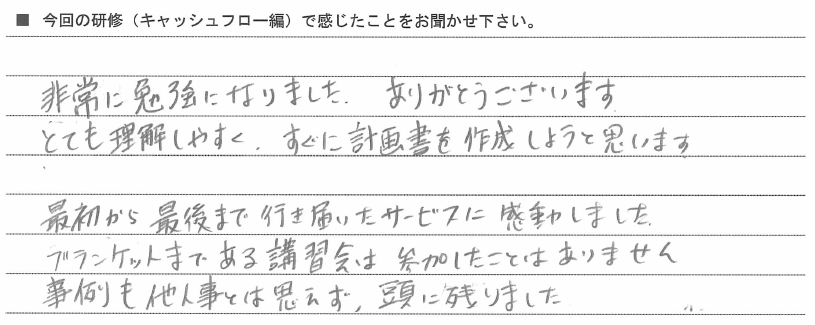 ■ 今回の研修（キャッシュフロー編）で感じたことをお聞かせ下さい。
非常に勉強になりました. ありがとうございます
とても理解しやすく. すぐに計画書を作成しようと思います
最初から最後まで行き届いたサービスに感動しました.
ブランケットまである講習会は参加したことはありません
事例も他人事とは思えず, 頭に残りました